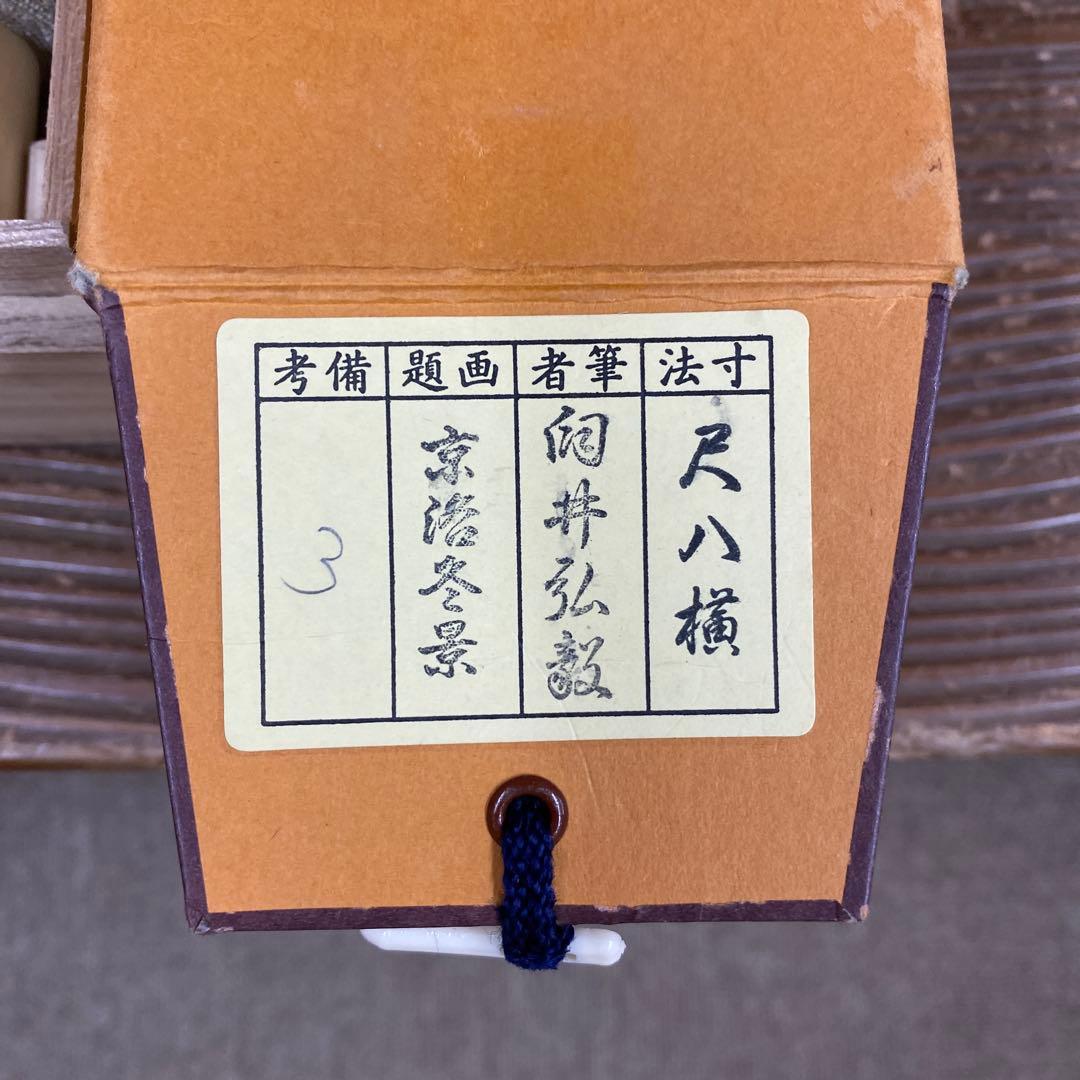 寸法
尺八横
筆者
臼井弘毅
画題
京洛冬景
備考
3